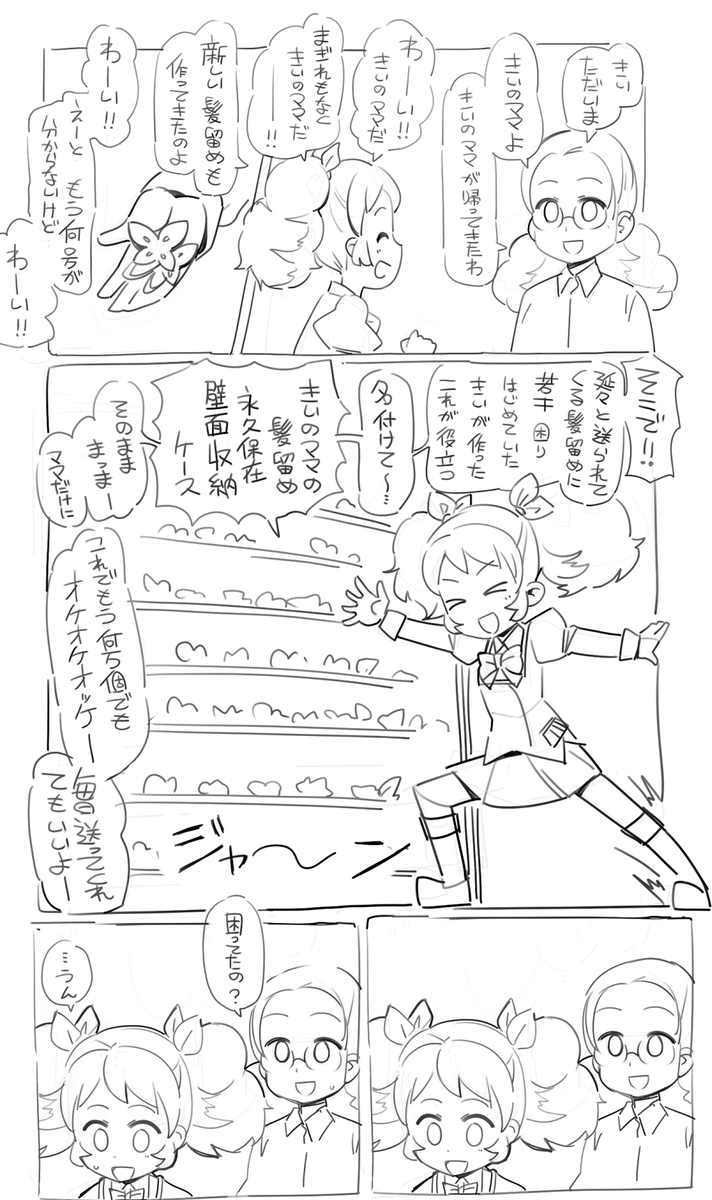 きい
ただいま
きいのママよ
きいのママが帰ってきたわ
わーい!!
きいのママだ
まぎれもなく
きいのママだ
!!
新しい髪留めも
作ってきたのよ
わーい!!
えーと もう何号が
分からないけど
わーい!!
そこで!!
延々と送られて
くる髪留めに
若干 困り
はじめていた
きいが作った
これが役立つ
名付けて〜…
きいのママの
髪留め
永久保在
壁面収納
ケース
そのまま
まっまー
ママだけに
これでもう何万個でも
オケオケオッケー
毎日送ってくれ
てもいいよー
ジャ〜ン
困ってたの?
…うん